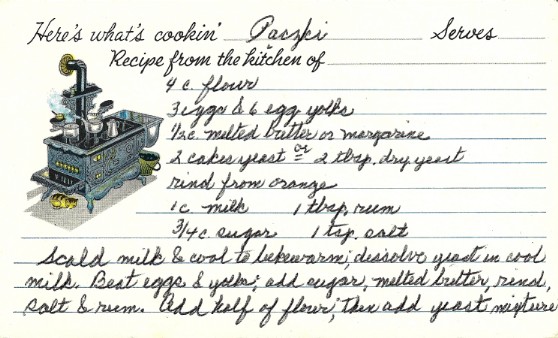 Here's what's cookin' Paczki Serves
Recipe from the kitchen of
4 c. flour
3 eggs & 6 egg yolks
1/2 c. melted butter or margarine
2 cakes yeast or 2 tbsp. dry yeast
rind from orange
1 c. milk 1 tbsp. rum
3/4 c. sugar 1 tsp. salt
Scald milk & cool to lukewarm; dissolve yeast in cool
milk. Beat eggs & yolks; add sugar, melted butter, rind,
salt & rum. Add half of flour, then add yeast mixture